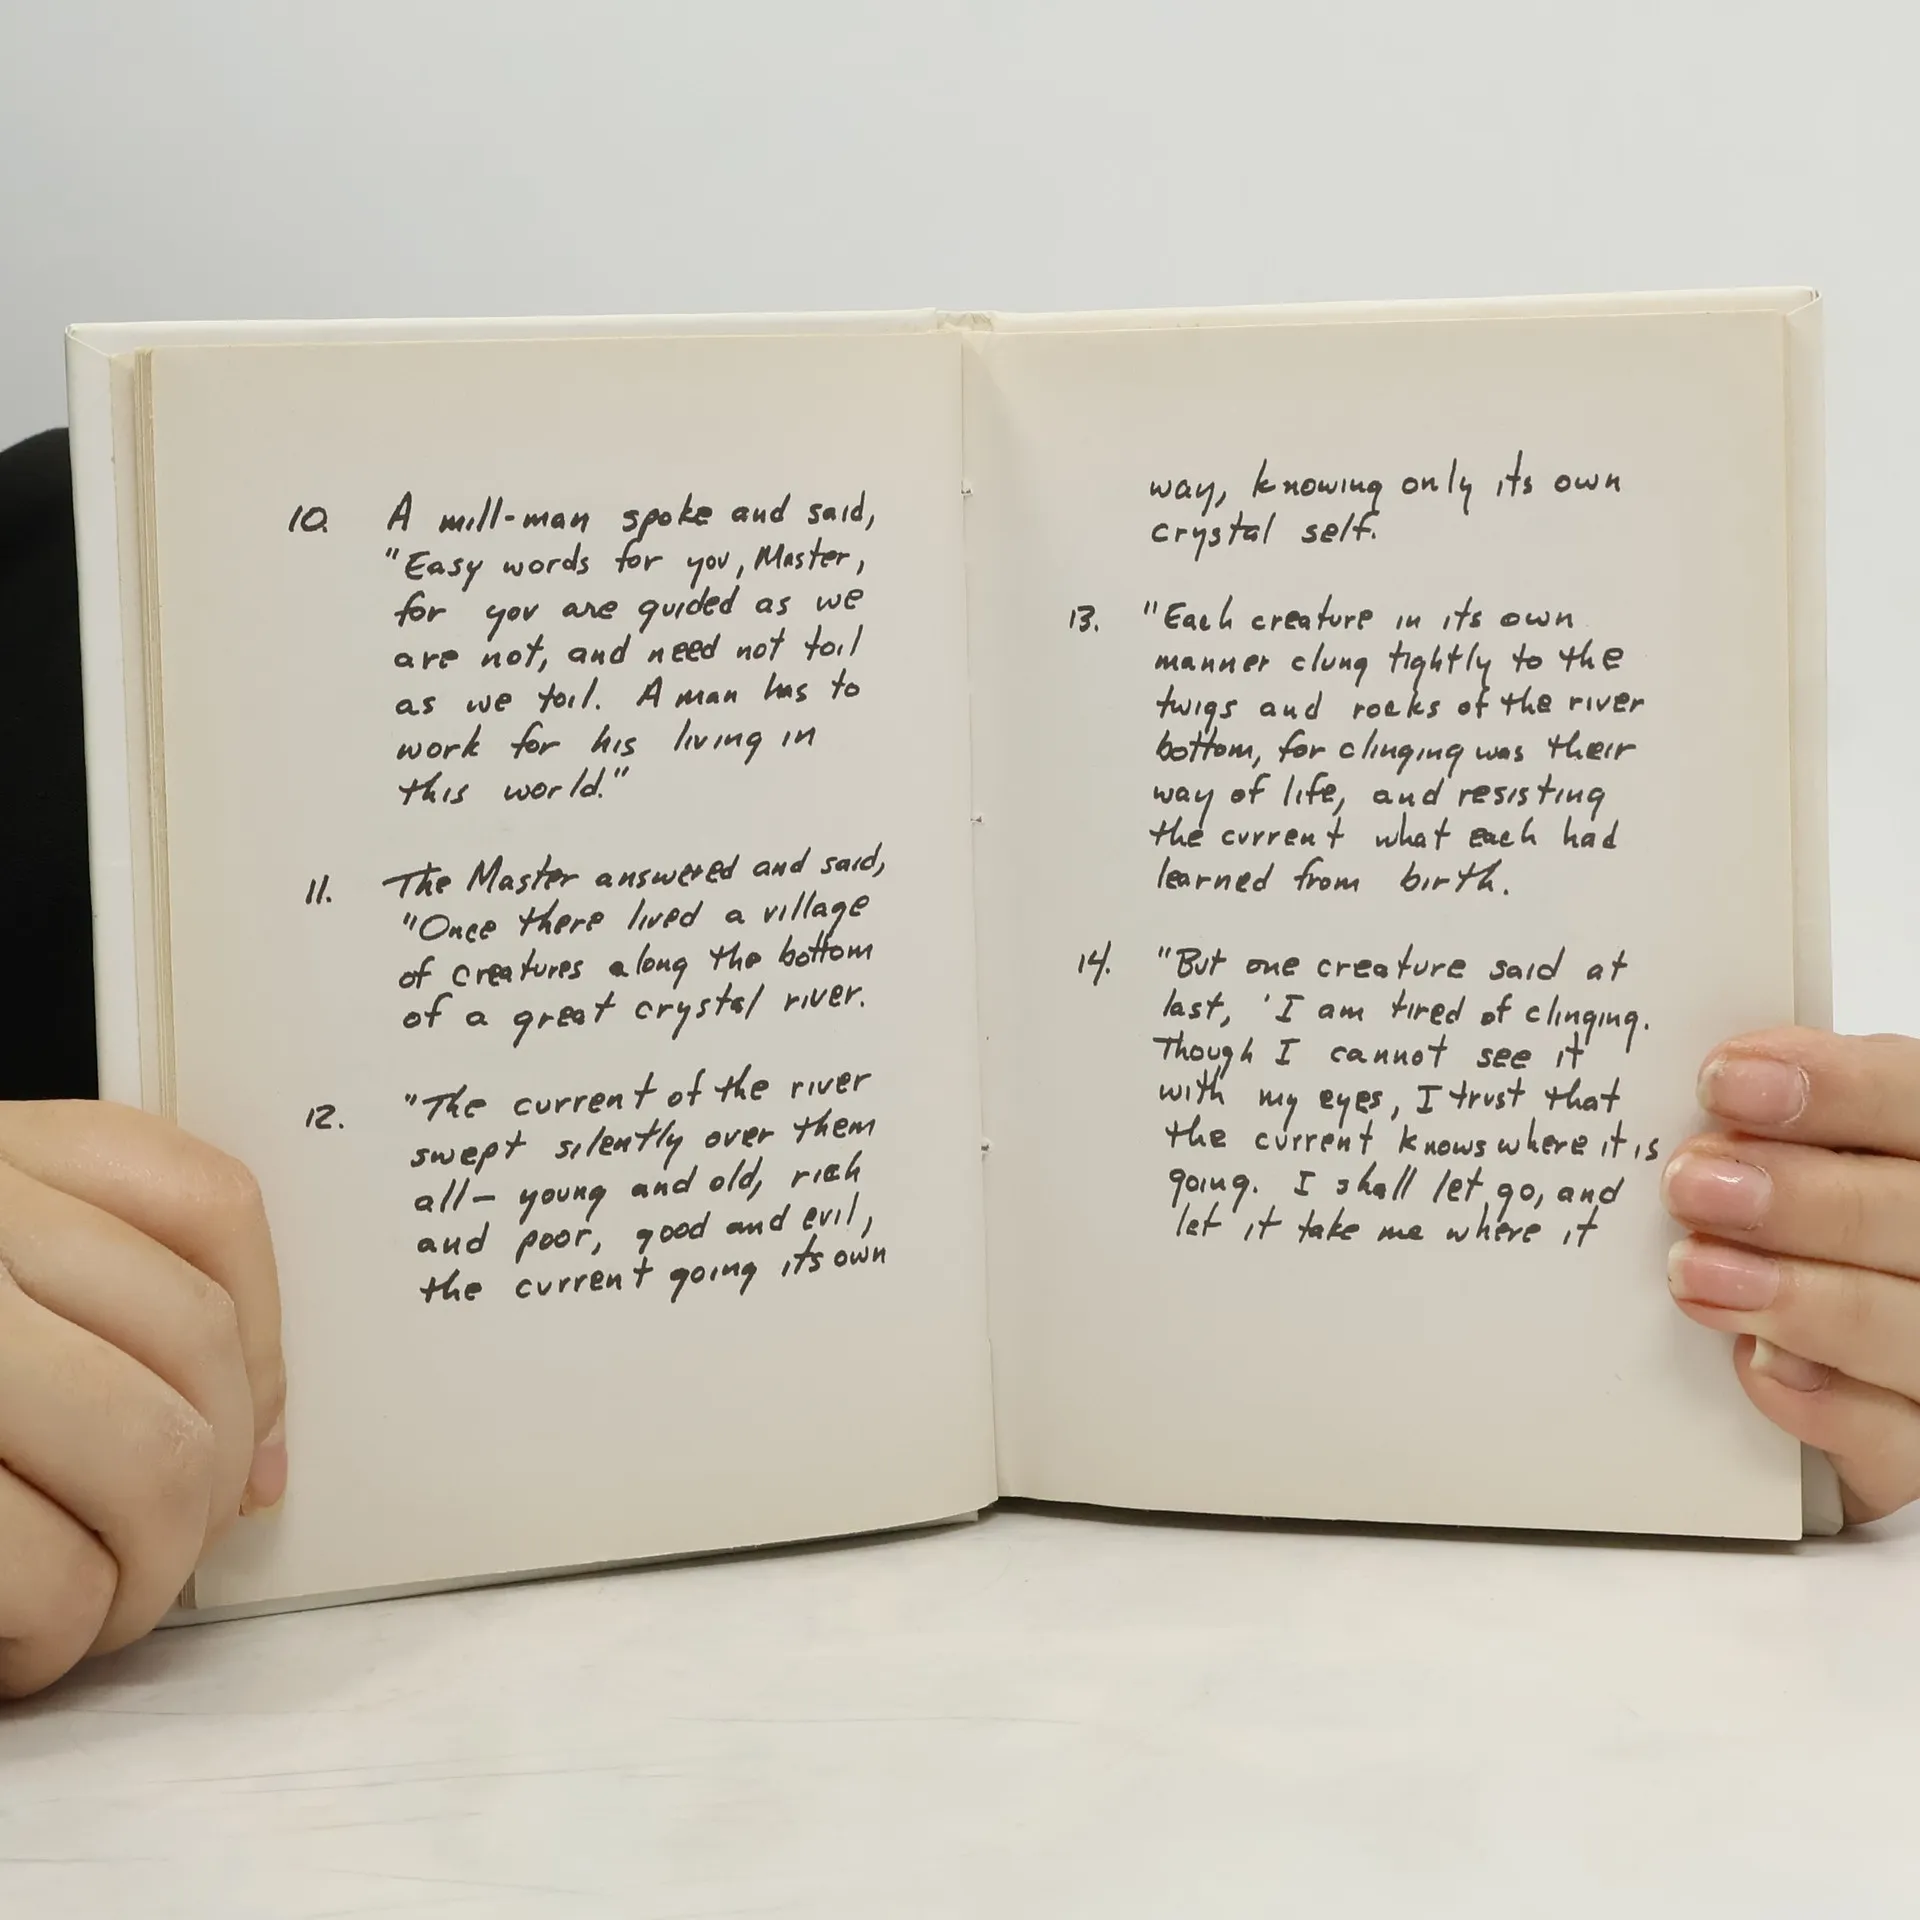 10. A mill-man spoke and said,
"Easy words for you, Master,
for you are guided as we
are not, and need not toil
as we toil. A man has to
work for his living in
this world."
11. The Master answered and said,
"Once there lived a village
of creatures along the bottom
of a great crystal river.
12. "The current of the river
swept silently over them
all— young and old, rich
and poor, good and evil,
the current going its own
way, knowing only its own
crystal self.
13. "Each creature in its own
manner clung tightly to the
twigs and rocks of the river
bottom, for clinging was their
way of life, and resisting
the current what each had
learned from birth.
14. "But one creature said at
last, 'I am tired of clinging.
Though I cannot see it
with my eyes, I trust that
the current knows where it is
going. I shall let go, and
let it take me where it